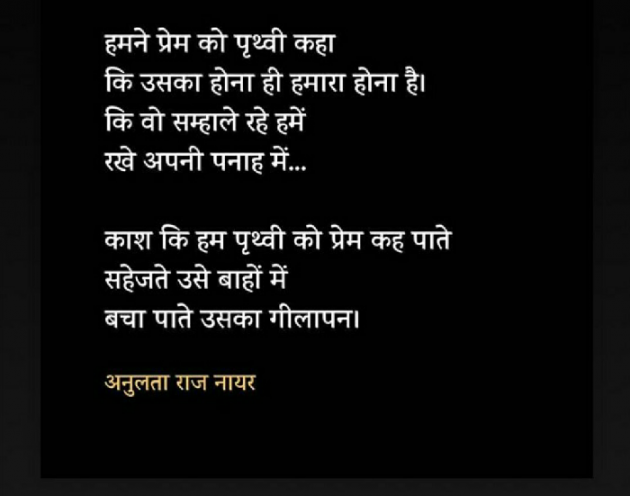 हमने प्रेम को पृथ्वी कहा
कि उसका होना ही हमारा होना है।
कि वो सम्हाले रहे हमें
रखे अपनी पनाह में...
काश कि हम पृथ्वी को प्रेम कह पाते
सहेजते उसे बाहों में
बचा पाते उसका गीलापन।
अनुलता राज नायर